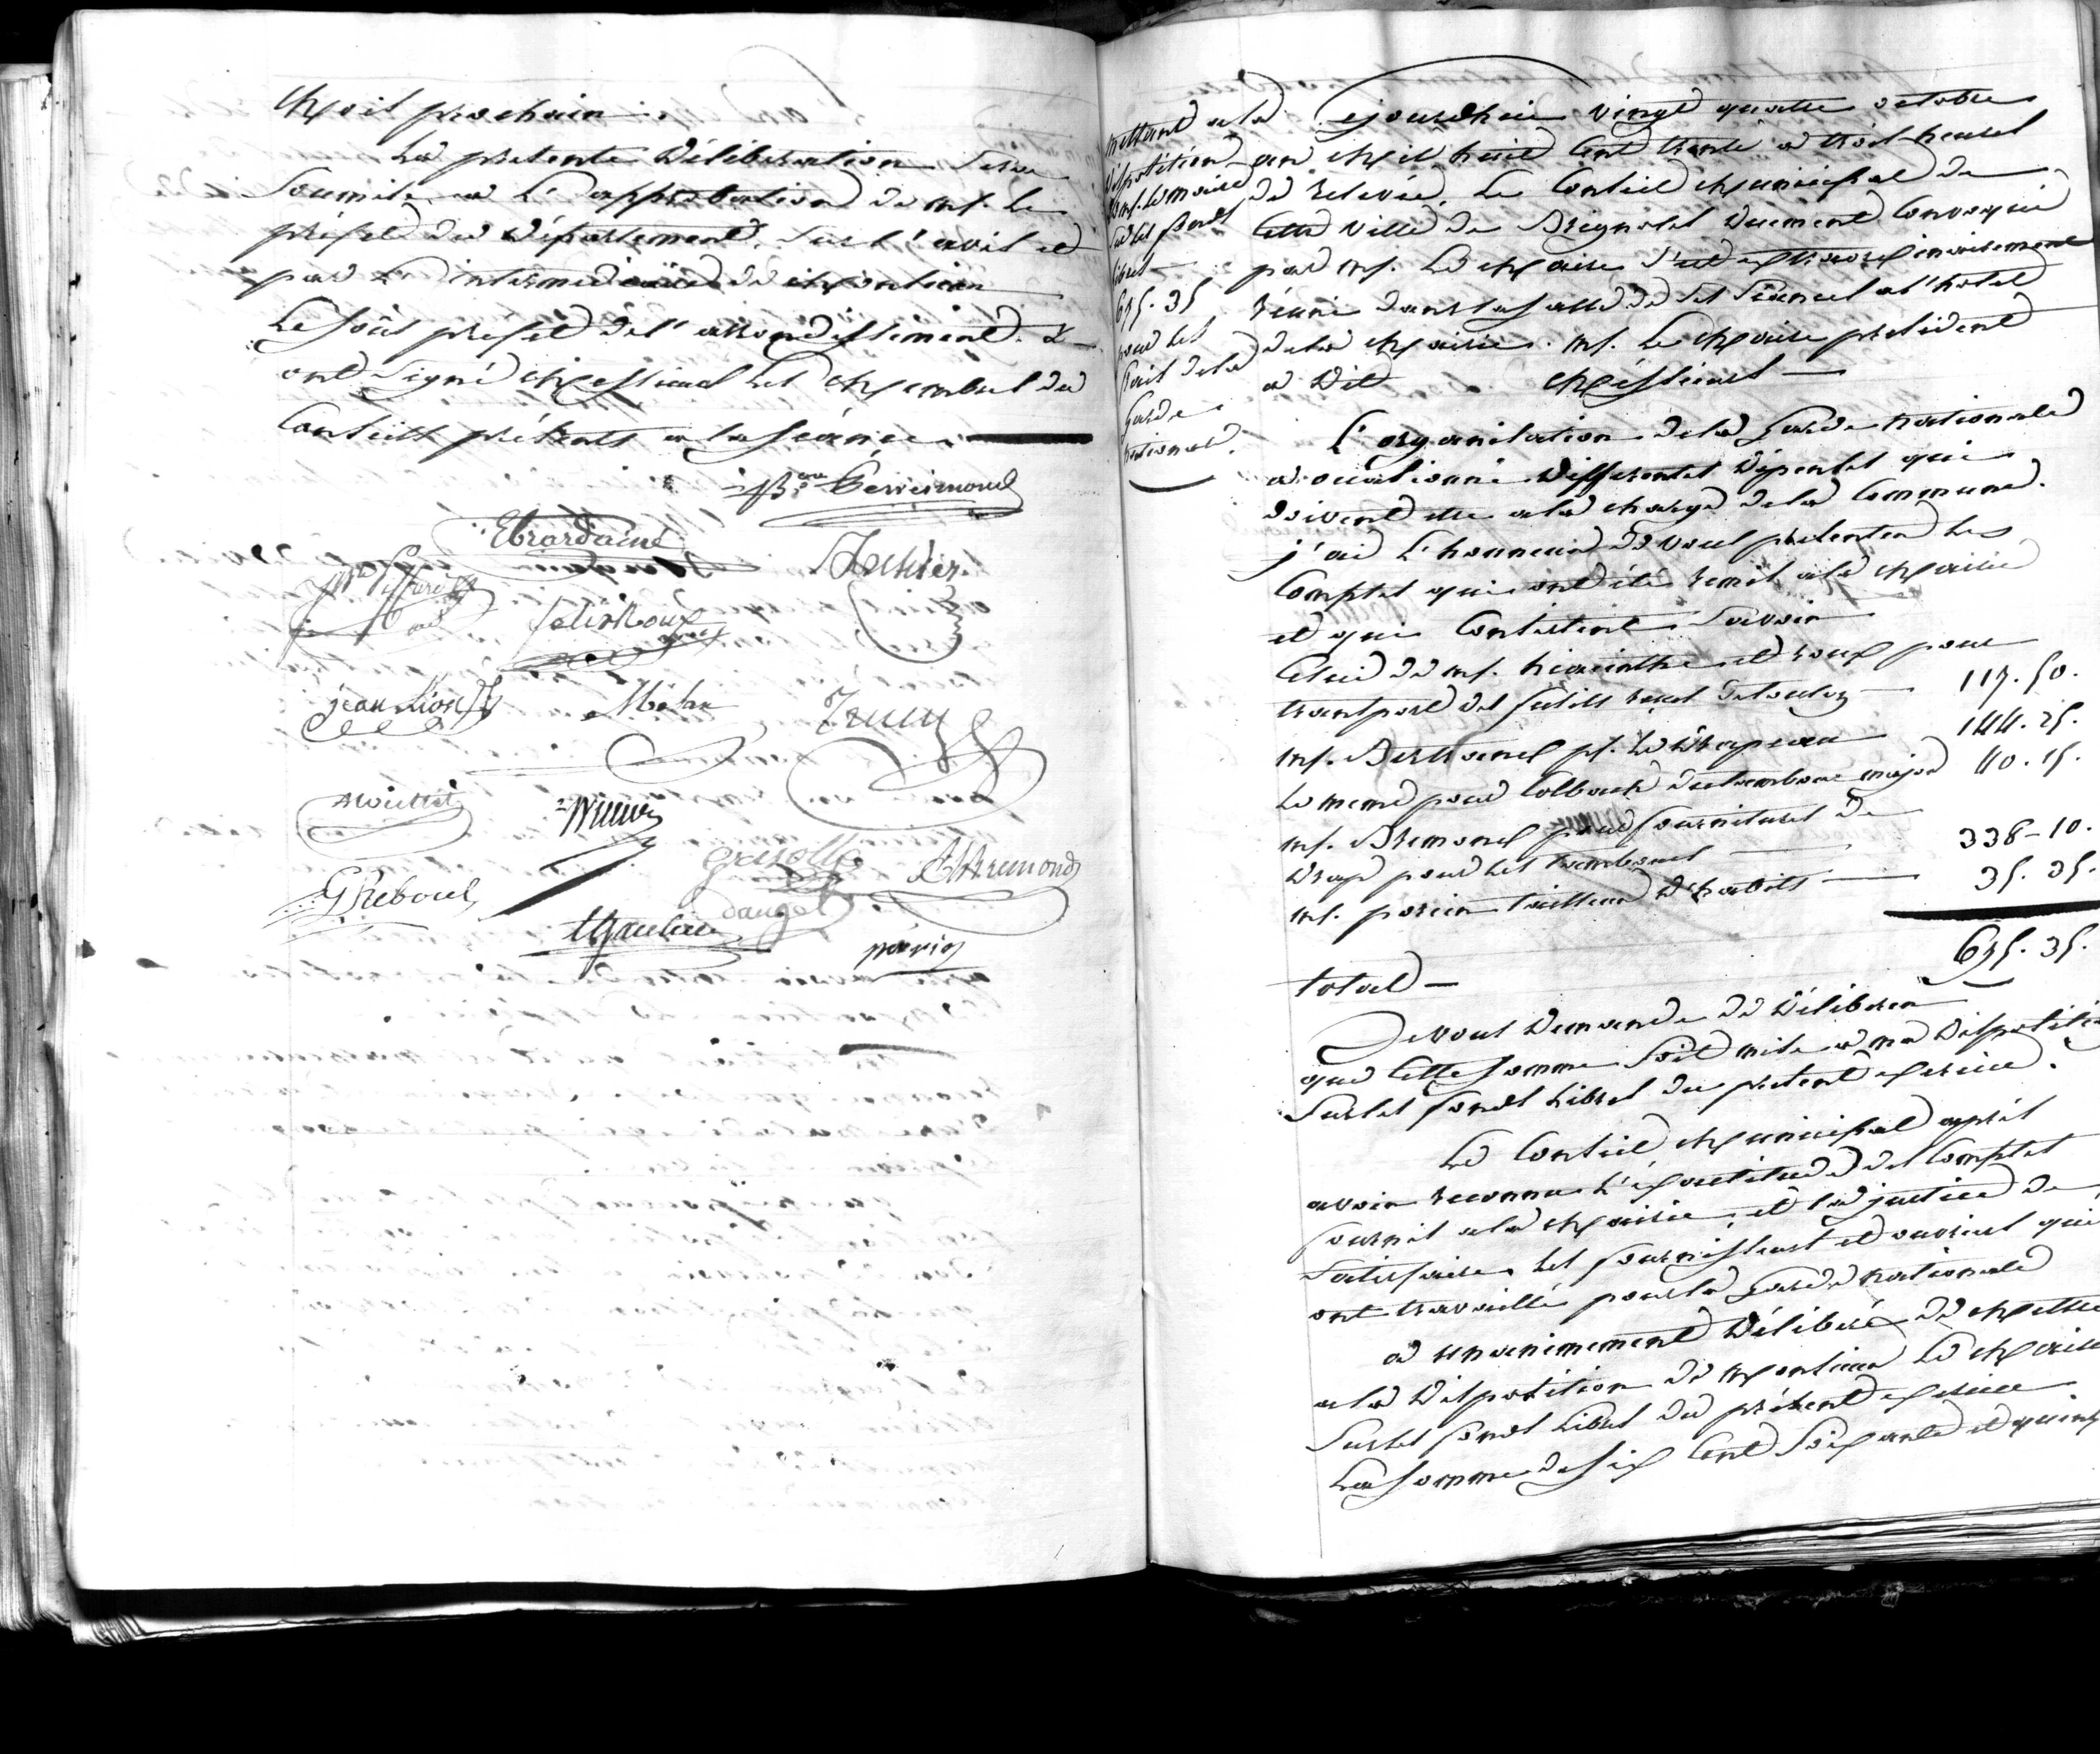 Mois prochain.
La présente Délibération sera
soumise a L'approbation de mr. Le
préfet du Département, sur l'avis et
par L'intermédiaire de Monsieur
Le sous préfet de l'arrondissement. &
ont signé Messieurs les Membres du
Conseil présents a la séance.
Bon Gerreimond
Ebrard ainé
Authier
felix Roux
jean Lion
Mottet
G Reboul
grisolle
A Bremond
dauget
Maulieu
porcio
mettant a la
disposition
de mr. Le maire
sur les fonds
libres
675. 35
pour les
frais de la
garde
nationale.
Cejourdhui vingt quatre octobre
an mil huit cent trente a trois heures
de relevée, Le Conseil Municipal de
cette ville de Brignoles duement Convoqué
par mr. Le Maire s'est extraordinairement
réuni dans la salle de ses séances a l'hotel
de la Mairie. mr. Le Maire président
a dit Messieurs
L'organisation de la garde nationale
a occasionné différentes dépenses qui
doivent etre a la charge de la Commune.
j'ai L'honneur de vous présenter les
Comptes qui ont été remis a la Mairie
et qui Consistent Savoir
Celui de mr. hiacinthe et roux pour
transport des fusils venus de toulon 117. 50.
mr. Bertrand pr. Le drapeau 144. 25.
Le meme pour Colback du tambour major 40. 15.
mr. Bremond pour fournitures de
drap pour les tambours 338-10.
mr. porcio tailleur d'habits 35. 35.
total 675. 35.
Je vous demande de délibérer
que cette somme soit mise a ma disposition
sur les fonds Libres du présent exercice.
Le Conseil Municipal après
avoir reconnu L'exactitude des Comptes
fournis a la Mairie, et la justice de
satisfaire les fournisseurs et ouvriers qui
ont travaillé pour la garde nationale
a unanimement Délibéré de Mettre
a la Disposition de Monsieur Le Maire
sur les fonds Libres du présent exercice
La somme de six Cent soixante et quinze